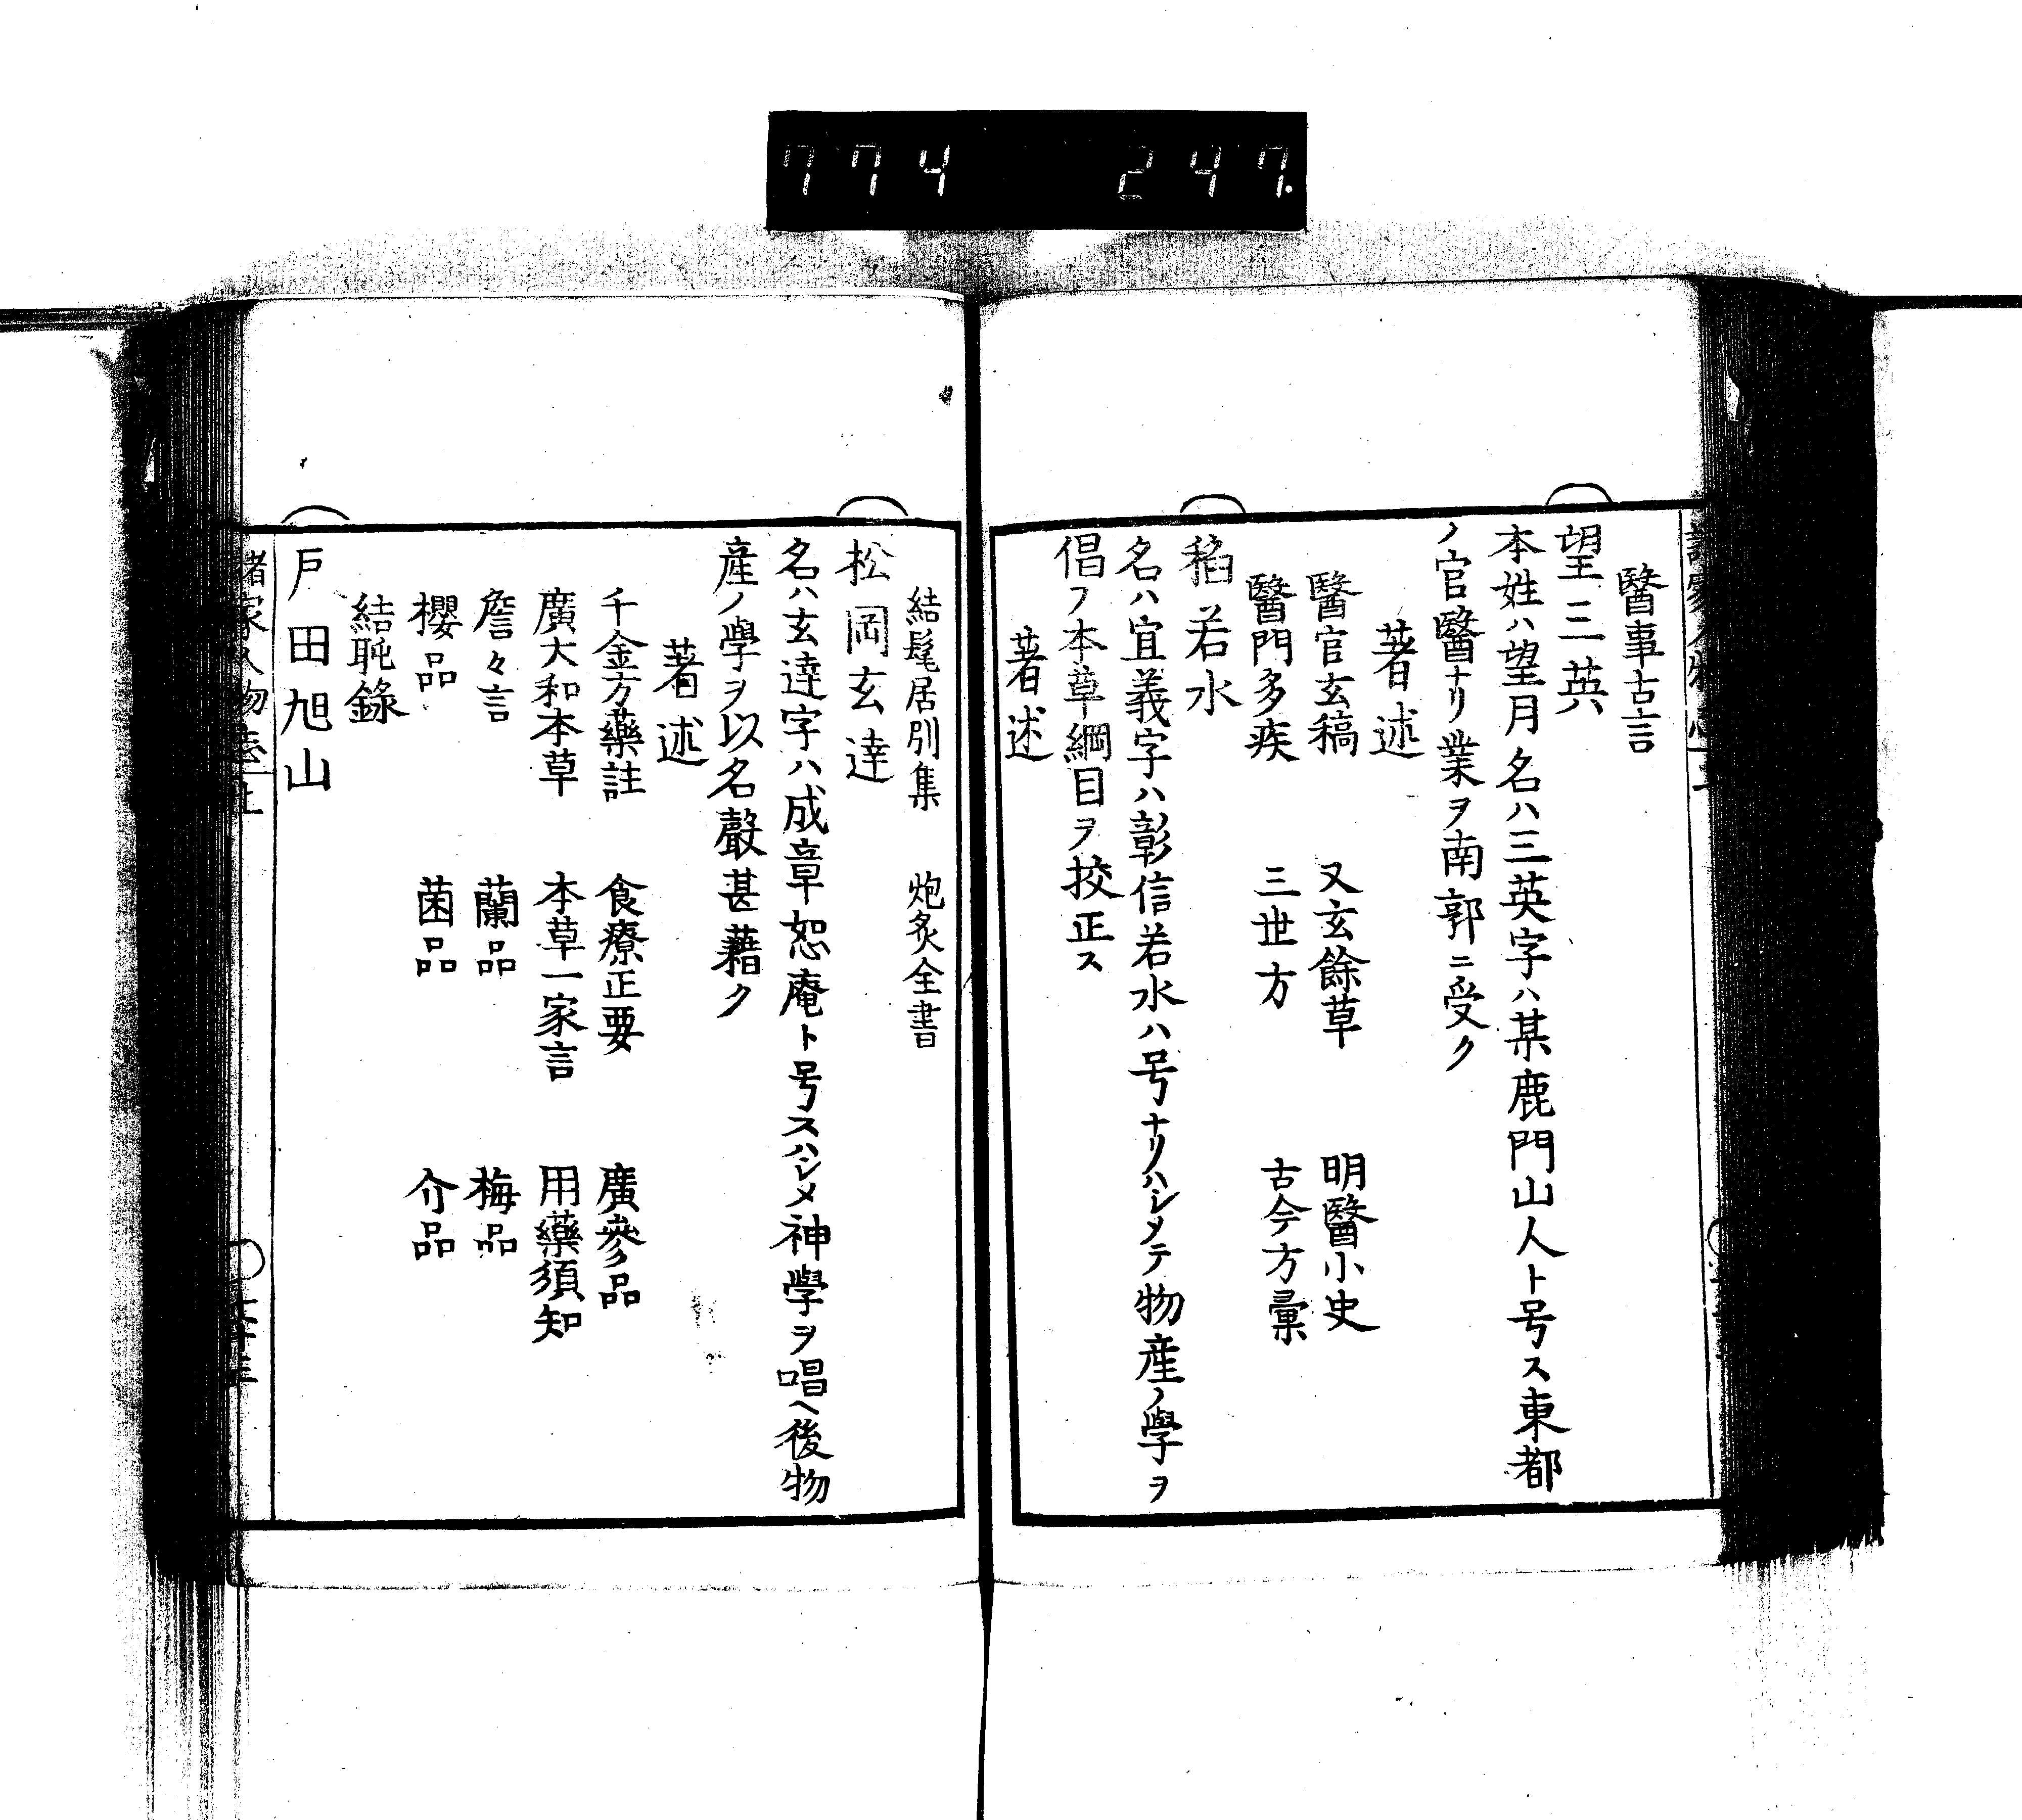 774 247.
醫事古言
望三英
本姓ハ望月名ハ三英字ハ某鹿門山人ト号ス東都
ノ官醫ナリ業ヲ南郭ニ受ク
著述
醫官玄稿 又玄餘草 明醫小史
醫門多疾 三世方 古今方彙
稻若水
名ハ宜義字ハ彰信若水ハ号ナリハシメテ物産ノ學ヲ
倡フ本草綱目ヲ挍正ス
著述
結髦居別集 炮炙全書
松岡玄達
名ハ玄達字ハ成章恕庵ト号スハシメ神學ヲ唱ヘ後物
産ノ學ヲ以名聲甚藉ク
著述
千金方藥註 食療正要 廣參品
廣大和本草 本草一家言 用藥須知
詹々言 蘭品 梅品
櫻品 菌品 介品
結毦錄
戸田旭山
諸家人物志上